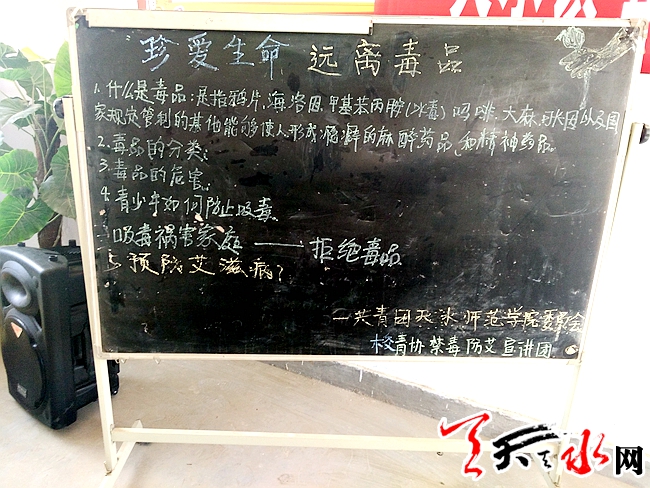 珍爱生命 远离毒品
1.什么是毒品:是指鸦片,海洛因,甲基苯丙胺(冰毒)吗啡.大麻.可卡因以及国
家规定管制的其他能够使人形成瘾癖的麻醉药品和精神药品。
2.毒品的分类:
3.毒品的危害.
4.青少年如何防止吸毒.
吸毒祸害家庭 —— 拒绝毒品
5.预防艾滋病?
—共青团天水师范学院委员会
校青协禁毒防艾宣讲团
天天天水网